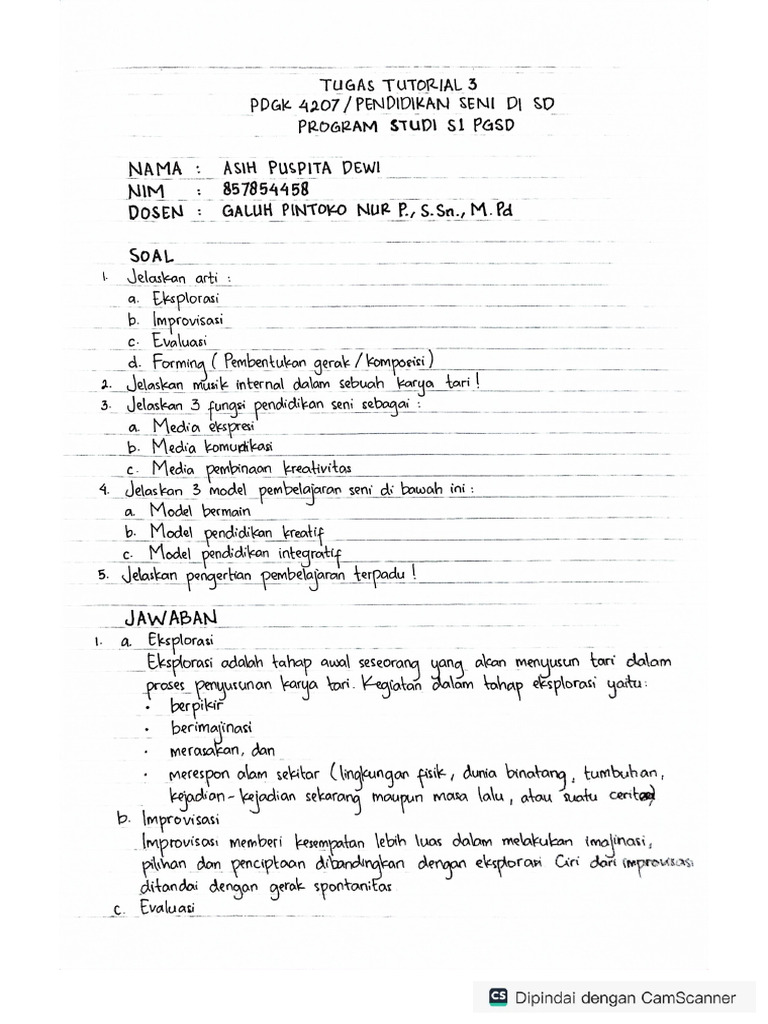 TUGAS TUTORIAL 3
PDGK 4207/PENDIDIKAN SENI DI SD
PROGRAM STUDI S1 PGSD
NAMA : ASIH PUSPITA DEWI
NIM : 857854458
DOSEN : GALUH PINTOKO NUR P., S.Sn., M.Pd
SOAL
1. Jelaskan arti :
a. Eksplorasi
b. Improvisasi
c. Evaluasi
d. Forming (Pembentukan gerak/Komposisi)
2. Jelaskan musik internal dalam sebuah karya tari!
3. Jelaskan 3 fungsi pendidikan seni sebagai :
a. Media ekspresi
b. Media komunikasi
c. Media pembinaan kreativitas
4. Jelaskan 3 model pembelajaran seni di bawah ini :
a. Model bermain
b. Model pendidikan kreatif
c. Model pendidikan integratif
5. Jelaskan pengertian pembelajaran terpadu!
JAWABAN
1. a. Eksplorasi
Eksplorasi adalah tahap awal seseorang yang akan menyusun tari dalam
proses penyusunan karya tari. Kegiatan dalam tahap eksplorasi yaitu:
• berpikir
• berimajinasi
• merasakan, dan
• merespon alam sekitar (lingkungan fisik, dunia binatang, tumbuhan,
kejadian-kejadian sekarang maupun masa lalu, atau suatu cerita)
b. Improvisasi
Improvisasi memberi kesempatan lebih luas dalam melakukan imajinasi,
pilihan dan penciptaan dibandingkan dengan eksplorasi Ciri dari improvisasi
ditandai dengan gerak spontanitas
c. Evaluasi
CS Dipindai dengan CamScanner